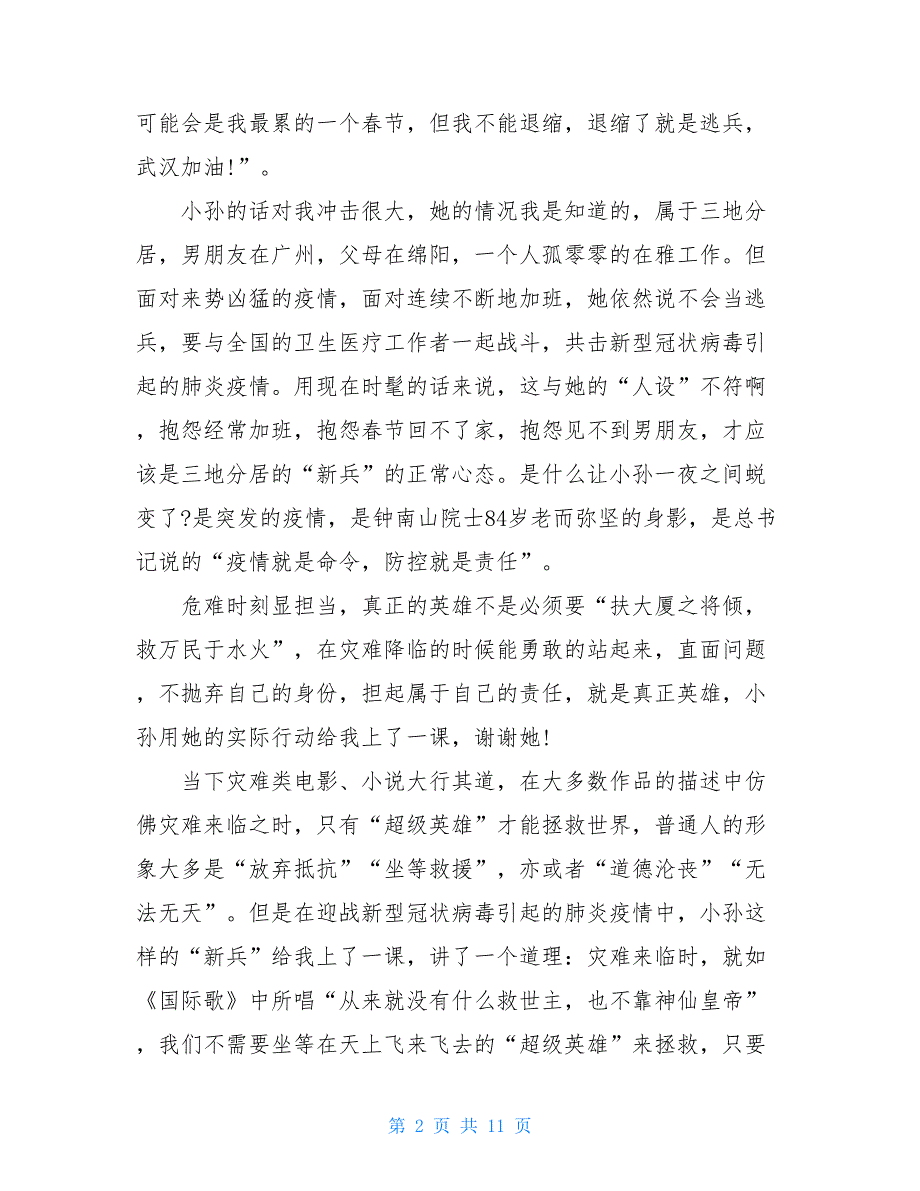 可能会是我最累的一个春节，但我不能退缩，退缩了就是逃兵，
武汉加油!”。
小孙的话对我冲击很大，她的情况我是知道的，属于三地分
居，男朋友在广州，父母在绵阳，一个人孤零零的在雅工作。但
面对来势凶猛的疫情，面对连续不断地加班，她依然说不会当逃
兵，要与全国的卫生医疗工作者一起战斗，共击新型冠状病毒引
起的肺炎疫情。用现在时髦的话来说，这与她的“人设”不符啊
，抱怨经常加班，抱怨春节回不了家，抱怨见不到男朋友，才应
该是三地分居的“新兵”的正常心态。是什么让小孙一夜之间蜕
变了?是突发的疫情，是钟南山院士84岁老而弥坚的身影，是总书
记说的“疫情就是命令，防控就是责任”。
危难时刻显担当，真正的英雄不是必须要“扶大厦之将倾，
救万民于水火”，在灾难降临的时候能勇敢的站起来，直面问题
，不抛弃自己的身份，担起属于自己的责任，就是真正英雄，小
孙用她的实际行动给我上了一课，谢谢她!
当下灾难类电影、小说大行其道，在大多数作品的描述中仿
佛灾难来临之时，只有“超级英雄”才能拯救世界，普通人的形
象大多是“放弃抵抗”“坐等救援”，亦或者“道德沦丧”“无
法无天”。但是在迎战新型冠状病毒引起的肺炎疫情中，小孙这
样的“新兵”给我上了一课，讲了一个道理：灾难来临时，就如
《国际歌》中所唱“从来就没有什么救世主，也不靠神仙皇帝”
，我们不需要坐等在天上飞来飞去的“超级英雄”来拯救，只要
第 2 页 共 11 页